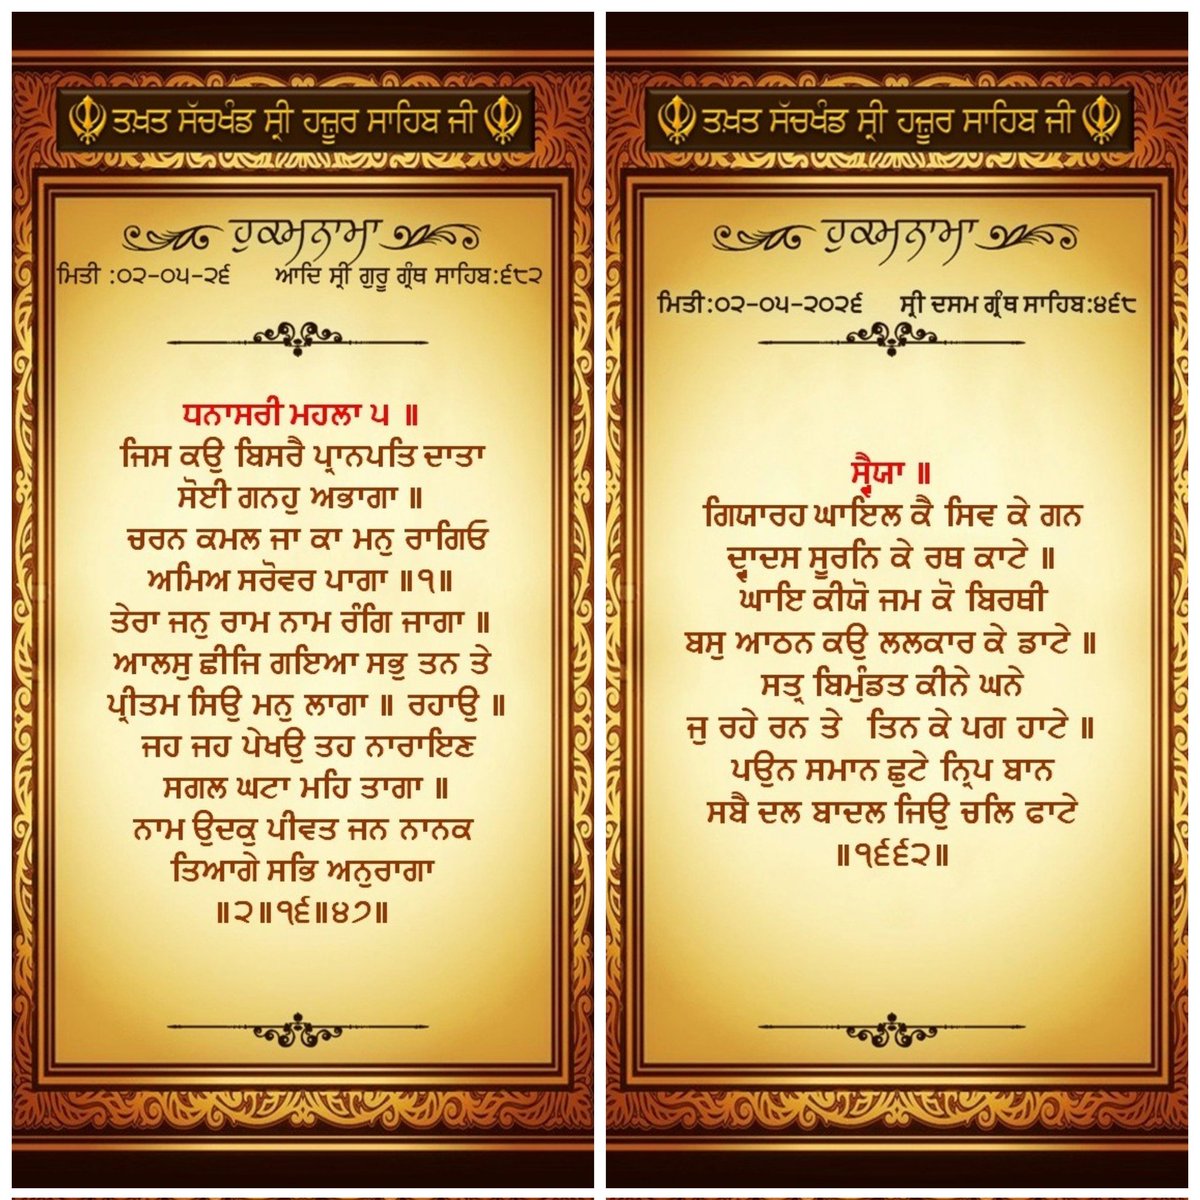 ਤਖ਼ਤ ਸੱਚਖੰਡ ਸ੍ਰੀ ਹਜ਼ੂਰ ਸਾਹਿਬ ਜੀ
ਹੁਕਮਨਾਮਾ
ਮਿਤੀ :੦੨-੦੫-੨੬ ਆਦਿ ਸ੍ਰੀ ਗੁਰੂ ਗ੍ਰੰਥ ਸਾਹਿਬ:੬੮੨
ਧਨਾਸਰੀ ਮਹਲਾ ੫ ॥
ਜਿਸ ਕਉ ਬਿਸਰੈ ਪ੍ਰਾਨਪਤਿ ਦਾਤਾ
ਸੋਈ ਗਨਹੁ ਅਭਾਗਾ ॥
ਚਰਨ ਕਮਲ ਜਾ ਕਾ ਮਨੁ ਰਾਗਿਓ
ਅਮਿਅ ਸਰੋਵਰ ਪਾਗਾ ॥੧॥
ਤੇਰਾ ਜਨੁ ਰਾਮ ਨਾਮ ਰੰਗਿ ਜਾਗਾ ॥
ਆਲਸੁ ਛੀਜਿ ਗਇਆ ਸਭੁ ਤਨ ਤੇ
ਪ੍ਰੀਤਮ ਸਿਉ ਮਨੁ ਲਾਗਾ ॥ ਰਹਾਉ ॥
ਜਹ ਜਹ ਪੇਖਉ ਤਹ ਨਾਰਾਇਣ
ਸਗਲ ਘਟਾ ਮਹਿ ਤਾਗਾ ॥
ਨਾਮ ਉਦਕੁ ਪੀਵਤ ਜਨ ਨਾਨਕ
ਤਿਆਗੇ ਸਭਿ ਅਨੁਰਾਗਾ
॥੨॥੧੬॥੪੭॥
ਤਖ਼ਤ ਸੱਚਖੰਡ ਸ੍ਰੀ ਹਜ਼ੂਰ ਸਾਹਿਬ ਜੀ
ਹੁਕਮਨਾਮਾ
ਮਿਤੀ:੦੨-੦੫-੨੦੨੬ ਸ੍ਰੀ ਦਸਮ ਗ੍ਰੰਥ ਸਾਹਿਬ:੪੬੮
ਸ੍ਵੈਯਾ ॥
ਗਿਯਾਰਹ ਘਾਇਲ ਕੈ ਸਿਵ ਕੇ ਗਨ
ਦ੍ਵਾਦਸ ਸੂਰਨਿ ਕੇ ਰਥ ਕਾਟੇ ॥
ਘਾਇ ਕੀਯੋ ਜਮ ਕੋ ਬਿਰਥੀ
ਬਸੁ ਆਠਨ ਕਉ ਲਲਕਾਰ ਕੇ ਡਾਟੇ ॥
ਸਤ੍ਰ ਬਿਮੁੰਡਤ ਕੀਨੇ ਘਨੇ
ਜੁ ਰਹੇ ਰਨ ਤੇ ਤਿਨ ਕੇ ਪਗ ਹਾਟੇ ॥
ਪਉਨ ਸਮਾਨ ਛੁਟੇ ਨ੍ਰਿਪ ਬਾਨ
ਸਬੈ ਦਲ ਬਾਦਲ ਜਿਉ ਚਲਿ ਫਾਟੇ
॥੧੬੬੨॥